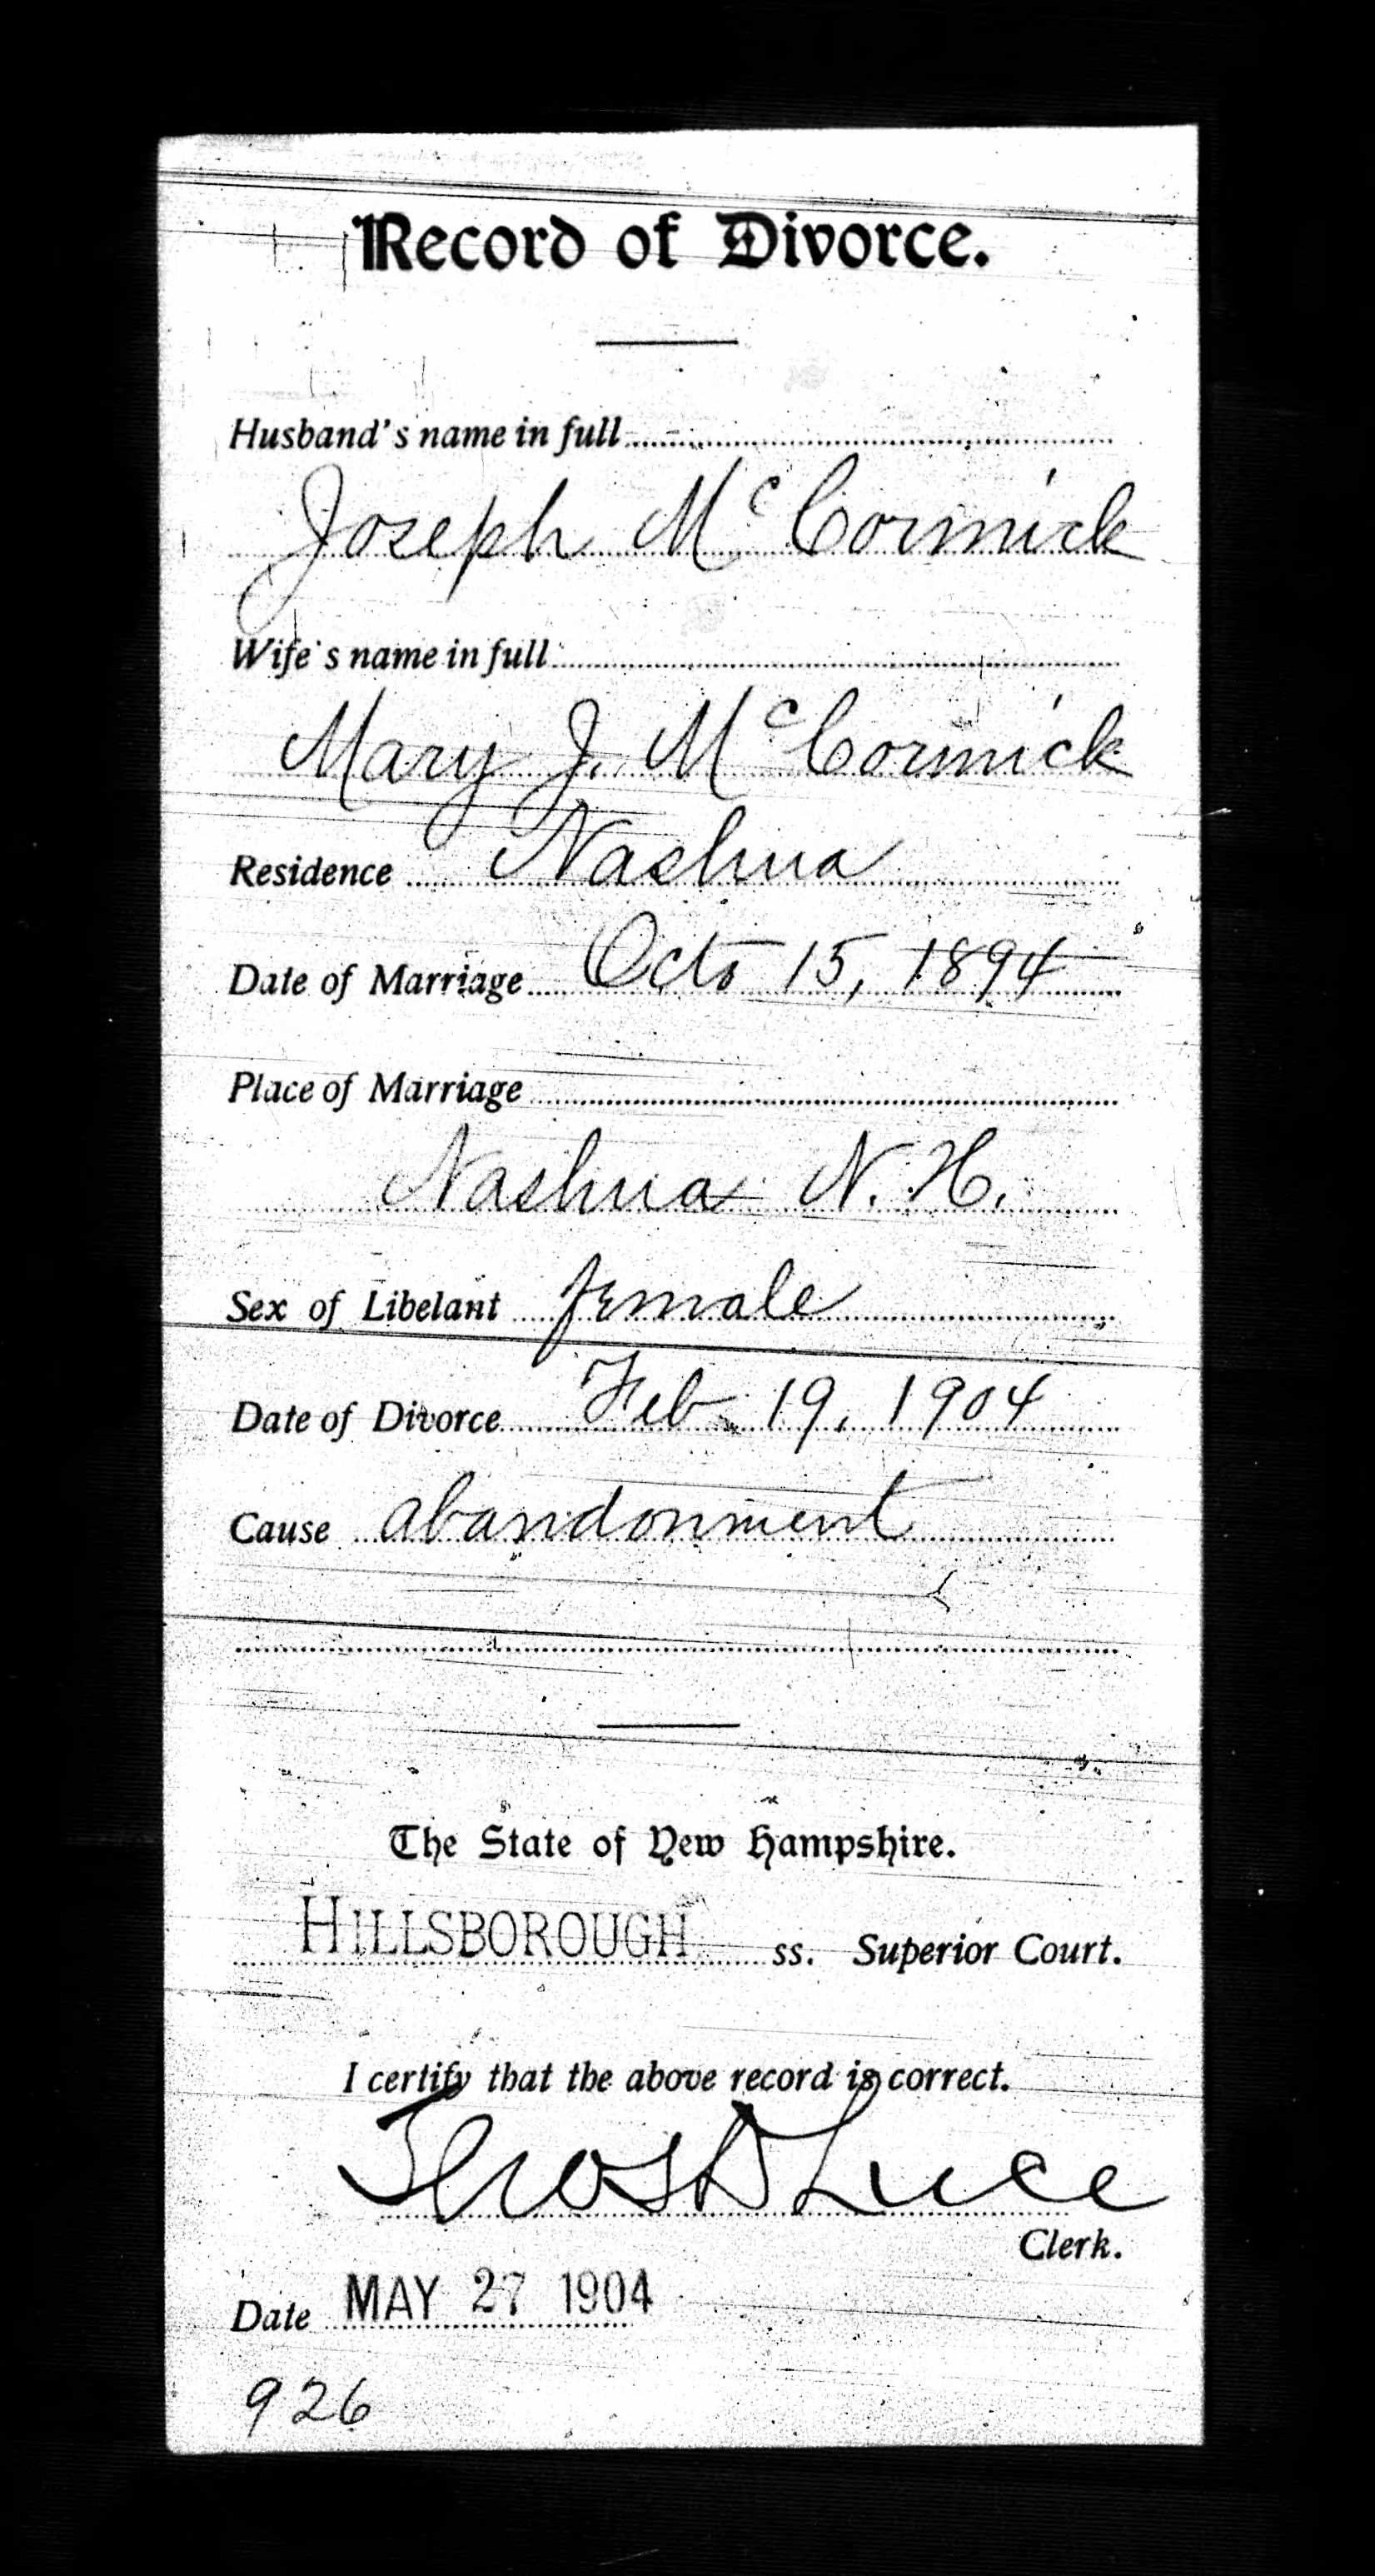 Record of Divorce.
Husband's name in full
Joseph McCormick
Wife's name in full
Mary J. McCormick
Residence Nashua
Date of Marriage Octo 15, 1894
Place of Marriage
Nashua N. H.
Sex of Libelant female
Date of Divorce Feb 19, 1904
Cause abandonment
The State of New Hampshire.
HILLSBOROUGH ss. Superior Court.
I certify that the above record is correct.
Thos D Luce
Clerk.
Date MAY 27 1904
926